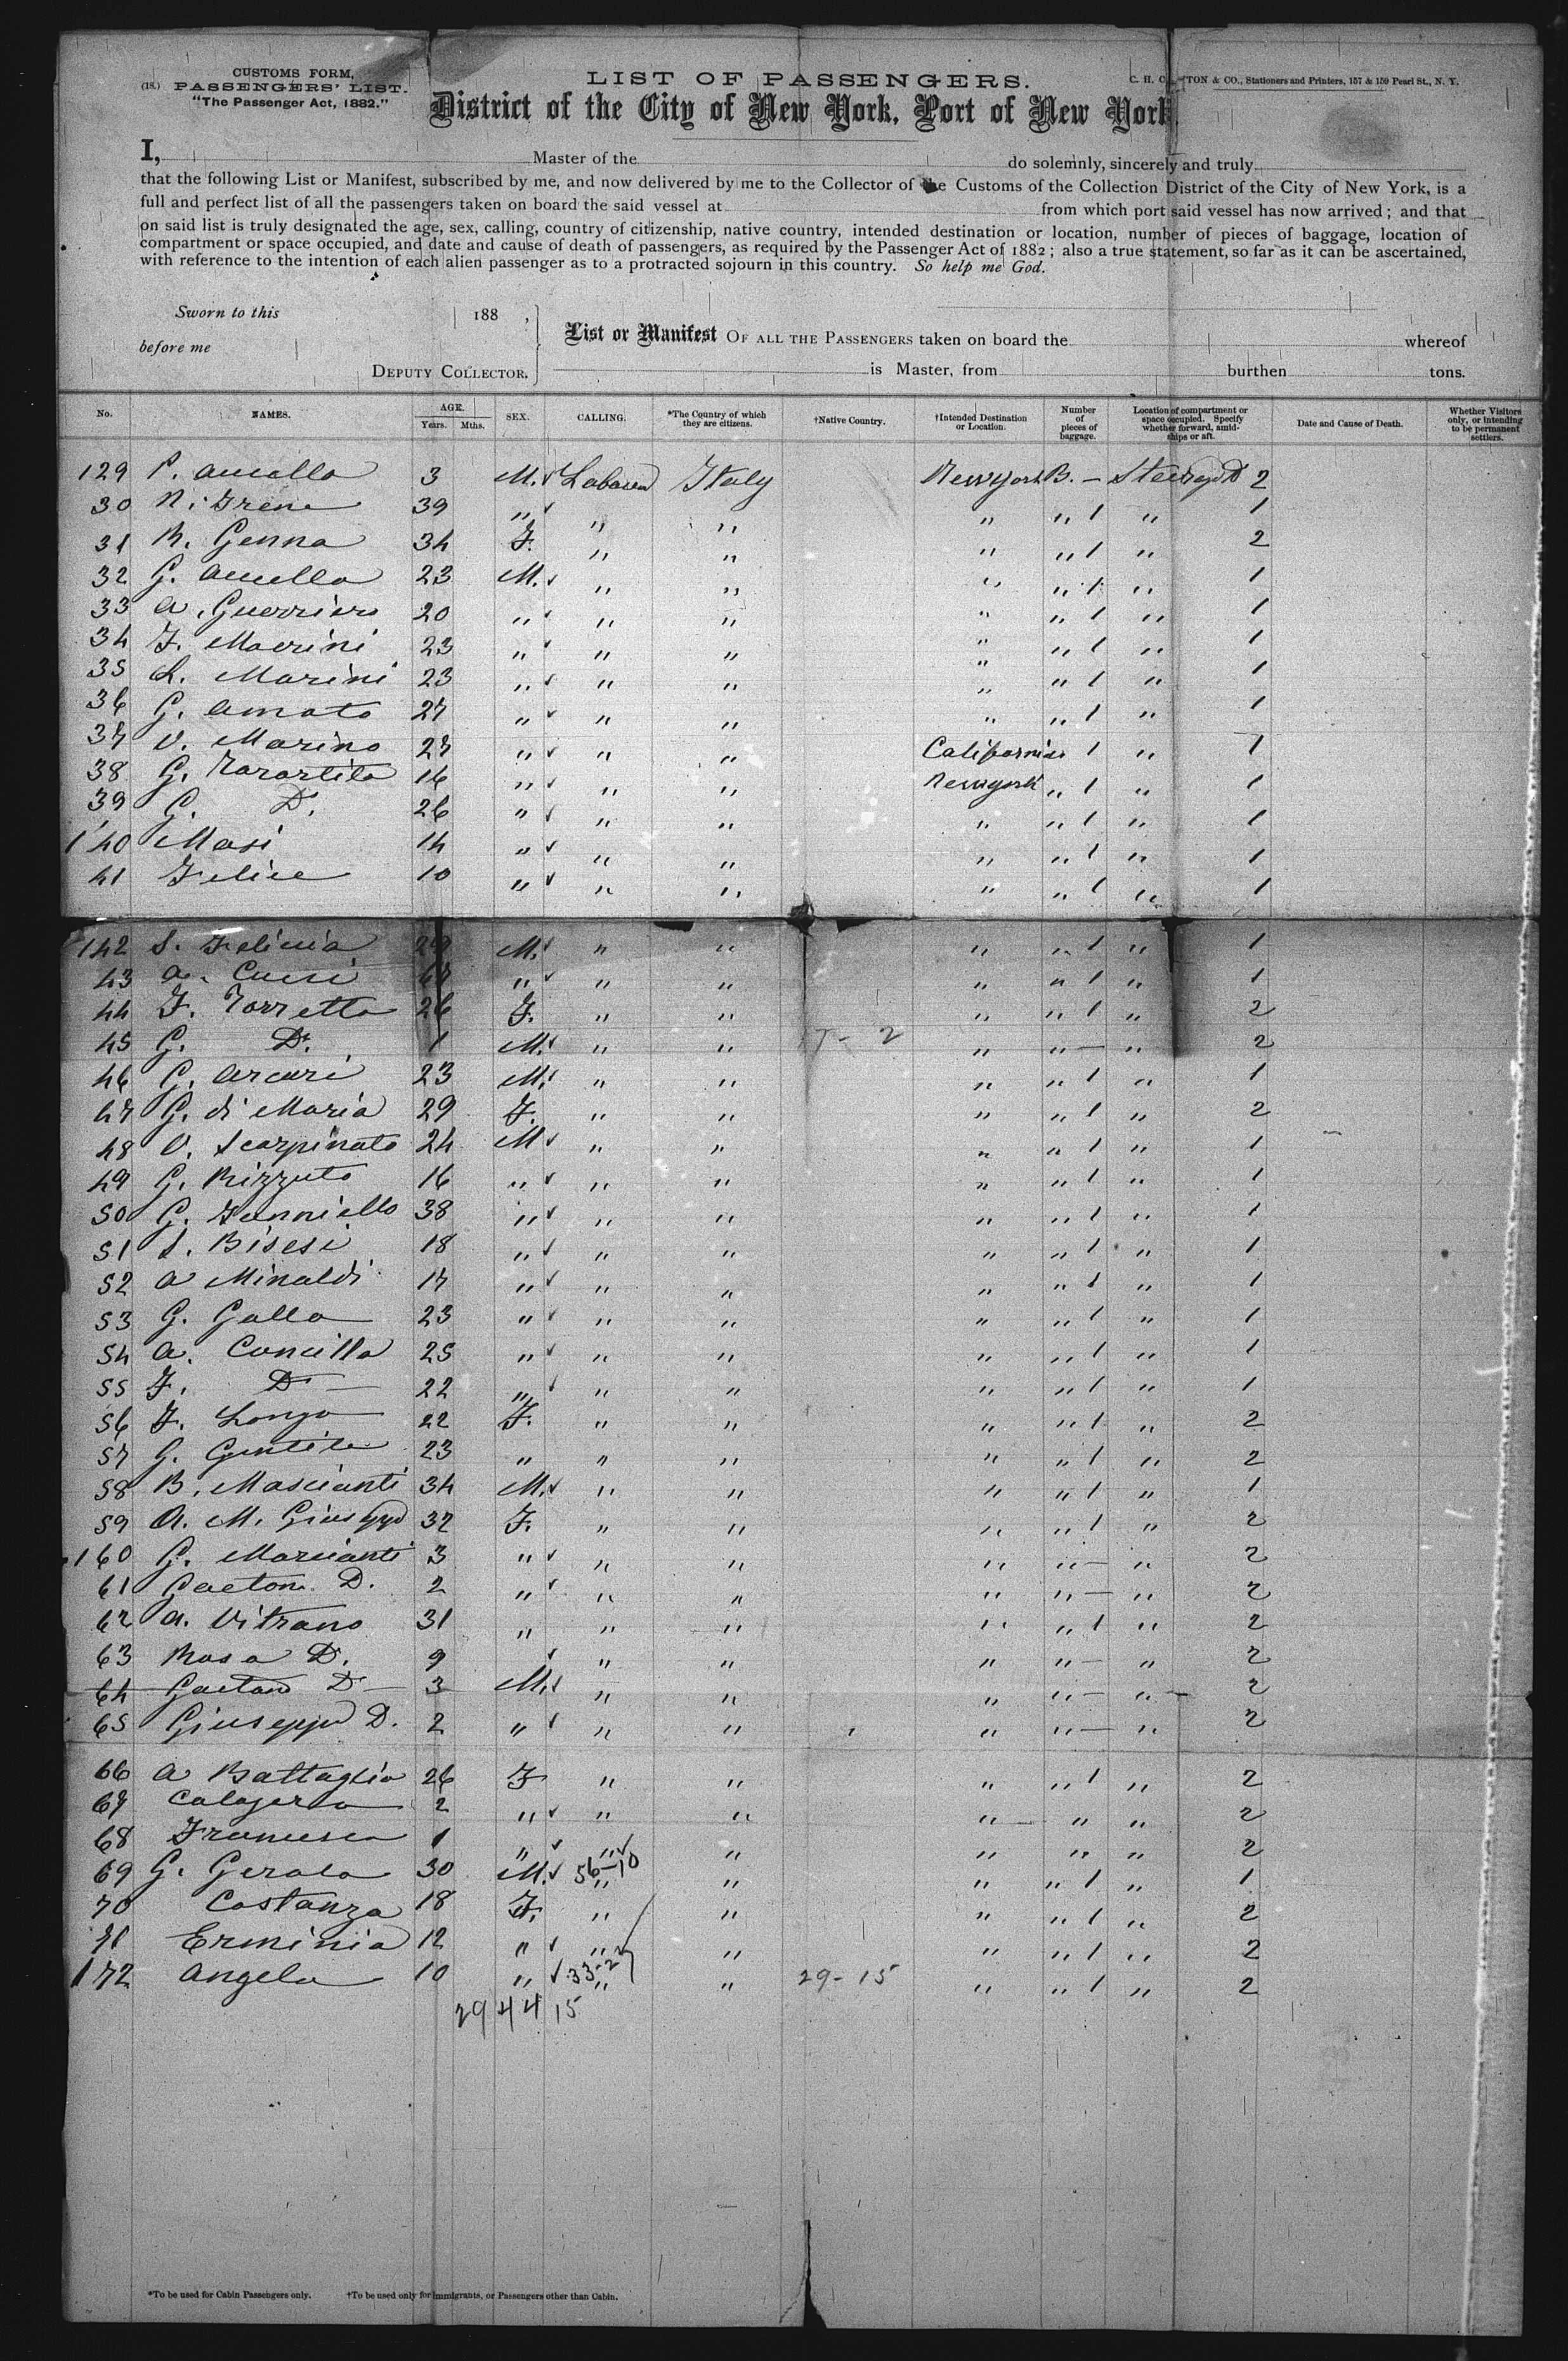 CUSTOMS FORM,
(18.) PASSENGERS' LIST.
"The Passenger Act, 1882."
LIST OF PASSENGERS.
C. H. TON & CO., Stationers and Printers, 157 & 159 Pearl St., N. Y.
District of the City of New York, Port of New York.
I, Master of the do solemnly, sincerely and truly
that the following List or Manifest, subscribed by me, and now delivered by me to the Collector of the Customs of the Collection District of the City of New York, is a
full and perfect list of all the passengers taken on board the said vessel at from which port said vessel has now arrived; and that
on said list is truly designated the age, sex, calling, country of citizenship, native country, intended destination or location, number of pieces of baggage, location of
compartment or space occupied, and date and cause of death of passengers, as required by the Passenger Act of 1882; also a true statement, so far as it can be ascertained,
with reference to the intention of each alien passenger as to a protracted sojourn in this country. So help me God.
Sworn to this 188 ,
before me
DEPUTY COLLECTOR.
List or Manifest OF ALL THE PASSENGERS taken on board the whereof
is Master, from burthen tons.
No. NAMES. AGE. Years. Mths. SEX. CALLING. *The Country of which they are citizens. †Native Country. †Intended Destination or Location. Number of pieces of baggage. Location of compartment or space occupied. Specify whether forward, amidships or aft. Date and Cause of Death. Whether Visitors only, or intending to be permanent settlers.
129 3 M. ✓ Italy New york B. — 2
30 39 " ✓ " " " " 1 " 1
31 R. Genna 34 F. " " " " 1 " 2
32 G. 23 M. ✓ " " " " 1 " 1
33 A. Guerriero 20 " ✓ " " " " 1 " 1
34 F. 23 " ✓ " " " " 1 " 1
35 L. Marini 23 " ✓ " " " " 1 " 1
36 G. Amato 27 " ✓ " " " " 1 " 1
37 V. Marino 27 " ✓ " " California " 1 " 1
38 G. 16 " ✓ " " New york " 1 " 1
39 G. D. 26 " ✓ " " " " 1 " 1
140 Masi 14 " ✓ " " " " 1 " 1
41 Felice 10 " ✓ " " " " 1 " 1
142 S. Felicia M. ✓ " " " " 1 " 1
43 A. " ✓ " " " " 1 " 1
44 F. Torretta 26 F. " " " " 1 " 2
45 G. D. 1 M. ✓ " " " " — " 2
46 G. Arcuri 23 M. ✓ " " " " 1 " 1
47 G. di Maria 29 F. " " " " 1 " 2
48 V. Scarpinato 24 M ✓ " " " " 1 " 1
49 G. Rizzuto 16 " ✓ " " " " 1 " 1
50 G. Janniello 38 " ✓ " " " " 1 " 1
51 S. Bisesi 18 " ✓ " " " " 1 " 1
52 A Minaldi 17 " ✓ " " " " 1 " 1
53 G. Gallo 23 " ✓ " " " " 1 " 1
54 A. 25 " ✓ " " " " 1 " 1
55 F. D — 22 " ✓ " " " " 1 " 1
56 F. Longo 22 F. " " " " 1 " 2
57 G. Gentile 23 " " " " " 1 " 2
58 B. Mascianti 34 M. ✓ " " " " 1 " 1
59 A. M. 32 F. " " " " 1 " 2
160 G. 3 " ✓ " " " " — " 2
61 D. 2 " ✓ " " " " — " 2
62 A. Vitrano 31 " " " " " 1 " 2
63 Rosa D. 9 ✓ " " " " — " 2
64 Gaetano D — 3 M. ✓ " " " " — " 2
65 Giuseppe D. 2 " ✓ " " " " — " 2
66 A Battaglia 26 F " " " " 1 " 2
67 Calogera 2 " ✓ " " " " " 2
68 Francesca 1 " ✓ " " " " " 2
69 G. Gerala 30 M. ✓ 56-10 " " " 1 " 1
70 Costanza 18 F. " " " " 1 " 2
71 Erminia 12 " ✓ " " " " 1 " 2
172 Angela 10 " ✓ " " 29-15 " " 1 " 2
29 44 15
*To be used for Cabin Passengers only. †To be used only for Immigrants, or Passengers other than Cabin.